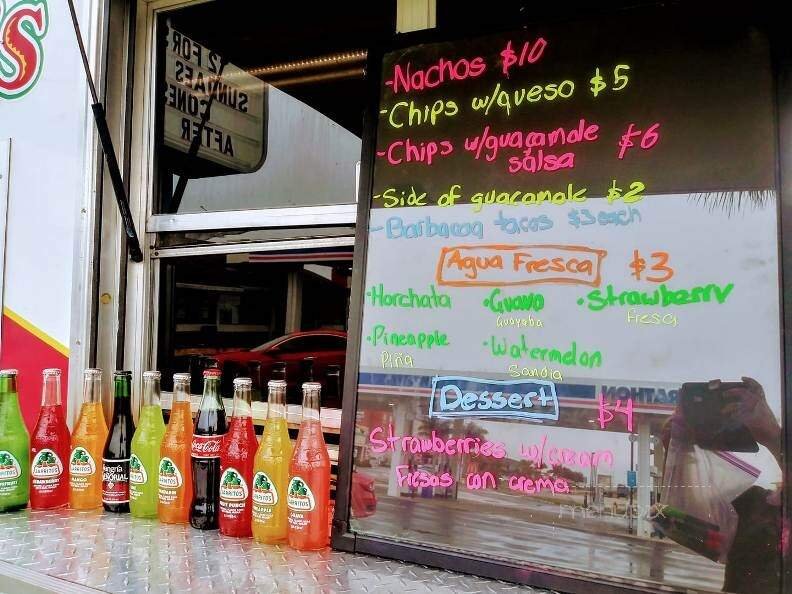 S
2 FOR
SUNDAES
CONES
AFTER
-Nachos $10
-Chips w/queso $5
-Chips w/guacamole $6
salsa
-Side of guacamole $2
-Barbacoa tacos $3 each
Agua Fresca $3
•Horchata •Guava •Strawberry
Guayaba Fresa
•Pineapple •Watermelon
Piña Sandia
Dessert $4
Strawberries w/cream
Fresas con crema
JARRITOS JARRITOS JARRITOS Sangría SEÑORIAL JARRITOS JARRITOS Coca-Cola JARRITOS JARRITOS JARRITOS
STRAWBERRY MANGO MANDARIN FRUIT PUNCH PINEAPPLE GUAVA
menupix